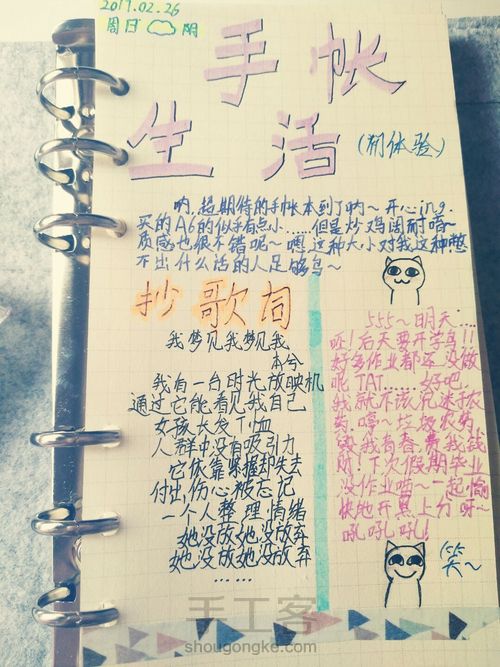 2017.02.26
周日 阴
手帐
生活
(初体验)
呐，超期待的手帐本到了呐～开心ing.
买的A6的似乎有点小……但是炒鸡阔耐唔
质感也很不错呢～嗯，这种大小对我这种憋
不出什么话的人足够鸟～
抄歌词
我梦见我梦见我
本兮
我有一台时光放映机
通过它能看见我自己
女孩长发T恤
人群中没有吸引力
它依靠紧握却失去
付出，伤心被忘记
一个人整理情绪
她没放她没放弃
她没放她没放弃
……
555～明天…
呃！后天要开学鸟！！
好多作业都还没做
呢TAT……好吧
我就不该沉迷于农
药，哼～垃圾农药，
毁我青春，费我钱
财！下次假期毕业
没作业喽～一起愉
快地开黑上分呀～
吼吼吼！
笑～
手工客
shougongke.com